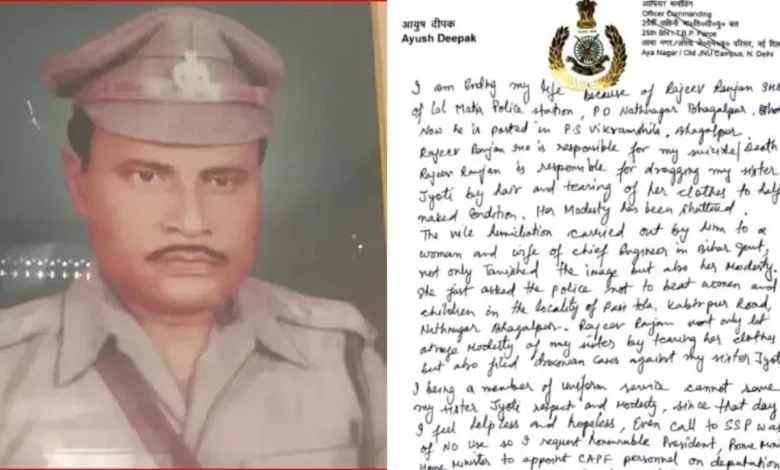 आयुष दीपक
Ayush Deepak
Officer Commanding
25th BN I.T.B.P. Force
Aya Nagar / Old JNU Campus, N. Delhi
I am Ending my life because of Rajeev Ranjan SHO
of Lal Matia Police station, PO Nathnagar Bhagalpur,
Now he is posted in P.S Vikramshila. Bhagalpur.
Rajeev Ranjan SHO is responsible for my suicide/Death
Rajeev Ranjan is responsible for dragging my sister
Jyoti by hair and tearing of her clothes to half
naked condition. Her Modesty has been shattered.
The vile humiliation carried out by him to a
woman and wife of chief Engineer in Bihar Govt,
not only Tarnished the image but also her Modesty.
She just asked the Police not to beat women and
children in the locality of Pasi tola, Kabirpur Road,
Nathnagar Bhagalpur. Rajeev Ranjan not only
Modesty of my sister by tearing her clothes
but also filed draconian cases against my sister Jyoti
I being a member of Uniform service cannot save
my sister Jyoti respect and Modesty, since that day
I feel helpless and hopeless, Even Call to SSP was
of NO Use so I request honourable President, Prime
Home Minister to appoint CAPF personnel on deputation